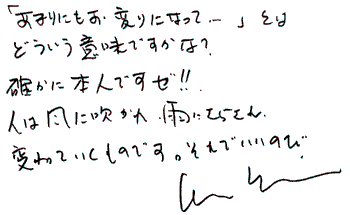 「あまりにもお変りになって…」とは
どういう意味ですかな?
確かに本人ですゼ!!
人は風に吹かれ、雨にさらされ、
変わっていくものです。それでいいのだ。